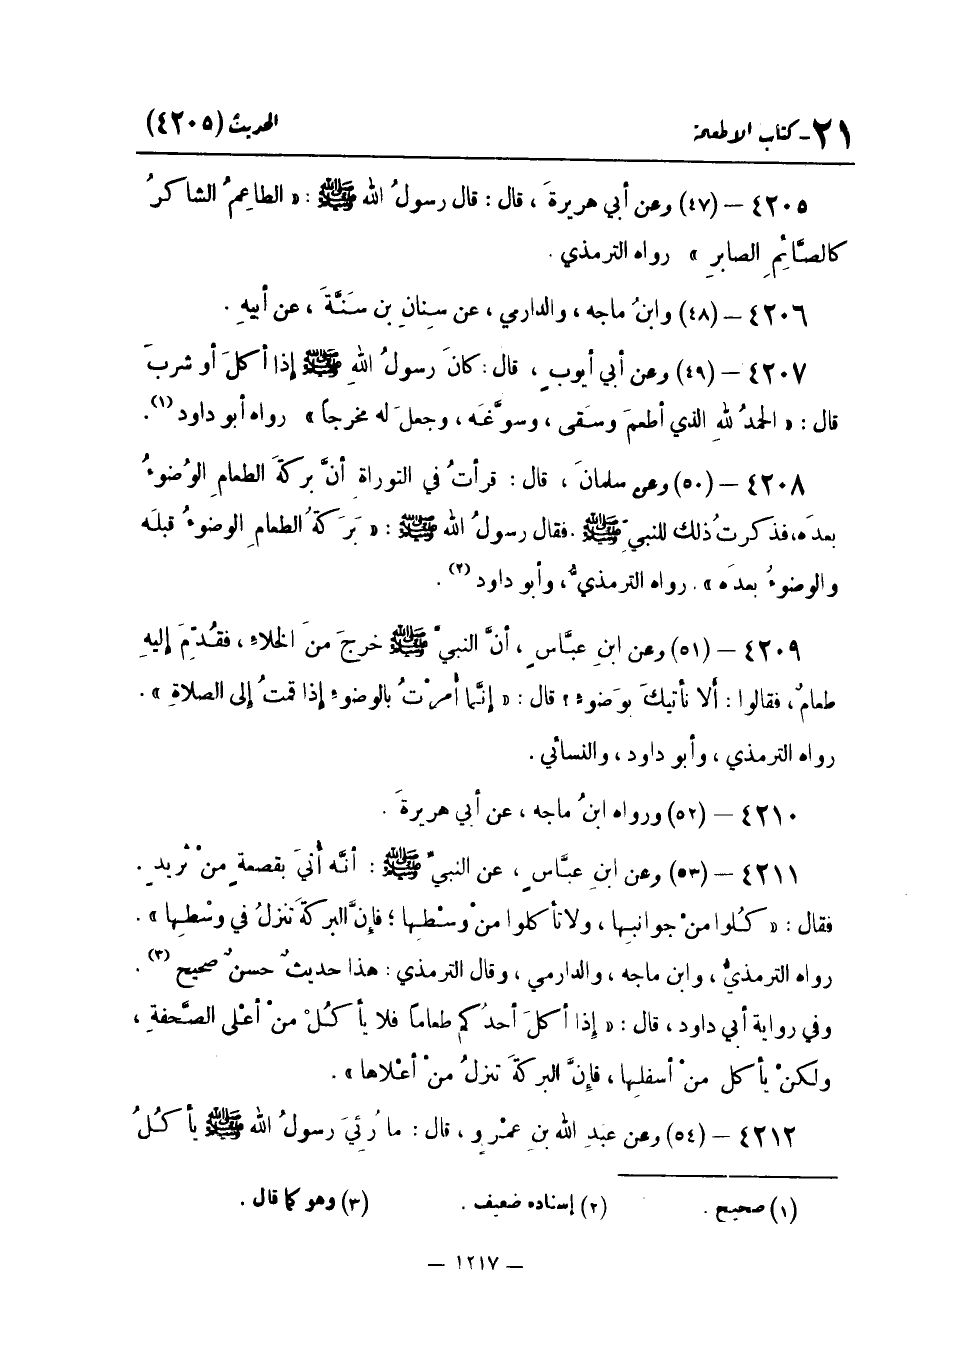 ٢١- كتاب الاطعمة
الحديثُ (٤٢٠٥)
٤٢٠٥ – (٤٧) وعن أبي هريرةَ ، قال : قال رسولُ الله ﷺ : « الطاعِمُ الشاكرُ
كالصَّائِمِ الصابرِ » رواه الترمذي .
٤٢٠٦ – (٤٨) وابنُ ماجه ، والدارمي ، عن سِنانِ بن سَنَّةَ ، عن أبيهِ .
٤٢٠٧ – (٤٩) وعن أبي أيوبٍ ، قال : كانَ رسولُ اللهِ ﷺ إذا أكلَ أو شربَ
قال : « الحمدُ للهِ الذي أطعمَ وسَقى ، وسوَّغَه ، وجعلَ له مخرجاً » رواه أبو داود (١) .
٤٢٠٨ – (٥٠) وعن سلمانَ ، قال : قرأتُ في التوراةِ أنَّ بركةَ الطعامِ الوُضوءُ
بعدَه، فذكرتُ ذلك للنبيِّ ﷺ . فقال رسولُ الله ﷺ : « بَرَكةُ الطعامِ الوضوءُ قبلَه
والوضوءُ بعدَه » . رواه الترمذيُّ، وأبو داود (٢) .
٤٢٠٩ – (٥١) وعن ابنِ عبَّاسٍ ، أنَّ النبيَّ ﷺ خرجَ منَ الخلاءِ ، فقُدِّمَ إليهِ
طعامٌ ، فقالوا : ألا نأتيكَ بوَضوءٍ ؟ قال : « إنَّما أُمرْتُ بالوضوءِ إذا قمتُ إلى الصلاةِ » .
رواه الترمذي ، وأبو داود ، والنسائي .
٤٢١٠ – (٥٢) ورواه ابنُ ماجه ، عن أبي هريرةَ .
٤٢١١ – (٥٣) وعن ابنِ عبَّاسٍ ، عن النبيِّ ﷺ : أنَّه أُتيَ بقصعةٍ منْ ثريدٍ .
فقال : « كُلوا منْ جوانبِها ، ولا تأكلوا منْ وسْطِها ؛ فإنَّ البركةَ تنزلُ في وسْطِها » .
رواه الترمذيُّ ، وابن ماجه ، والدارمي ، وقال الترمذي : هذا حديثٌ حسنٌ صحيح (٣) .
وفي رواية أبي داود ، قال : « إذا أكلَ أحدُكم طعاماً فلا يأكُلْ منْ أعْلى الصَّحفةِ ،
ولكنْ يأكل منْ أسفلِها ، فإنَّ البركةَ تنزلُ منْ أعْلاها » .
٤٢١٢ – (٥٤) وعن عبدِ الله بنِ عمْرٍو ، قال : ما رُئيَ رسولُ الله ﷺ يأكُلُ
(١) صحيح . (٢) إسناده ضعيف . (٣) وهو كما قال .
– ١٢١٧ –